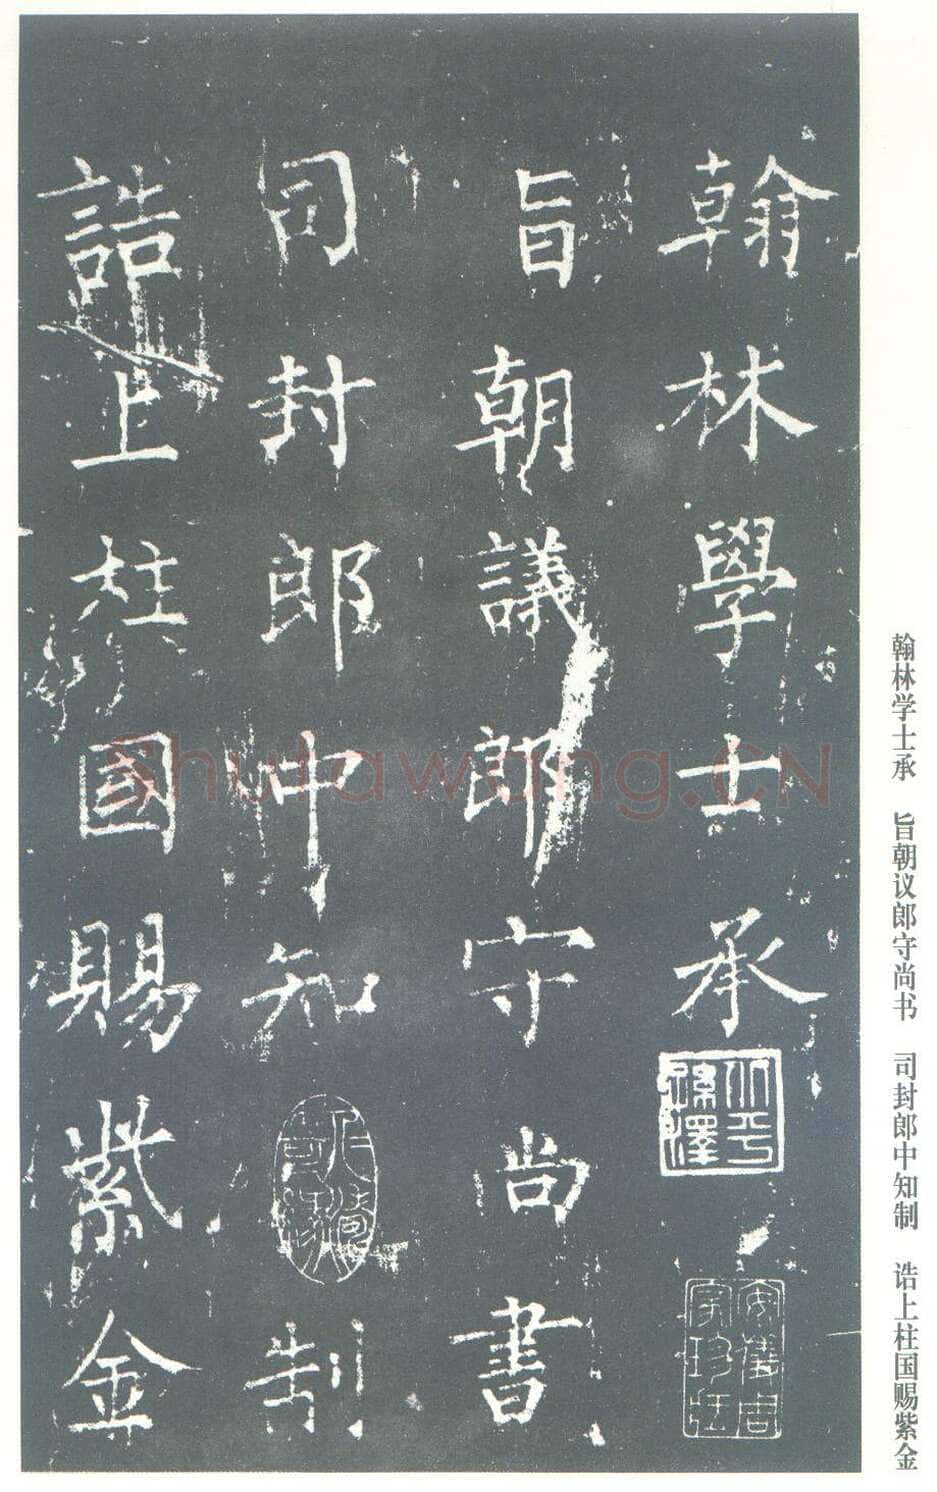 翰林學士承
旨朝議郎守尚書
司封郎中知制
誥上柱國賜紫金
翰林学士承　旨朝议郎守尚书　司封郎中知制　诰上柱国赐紫金
Shufawang.CN